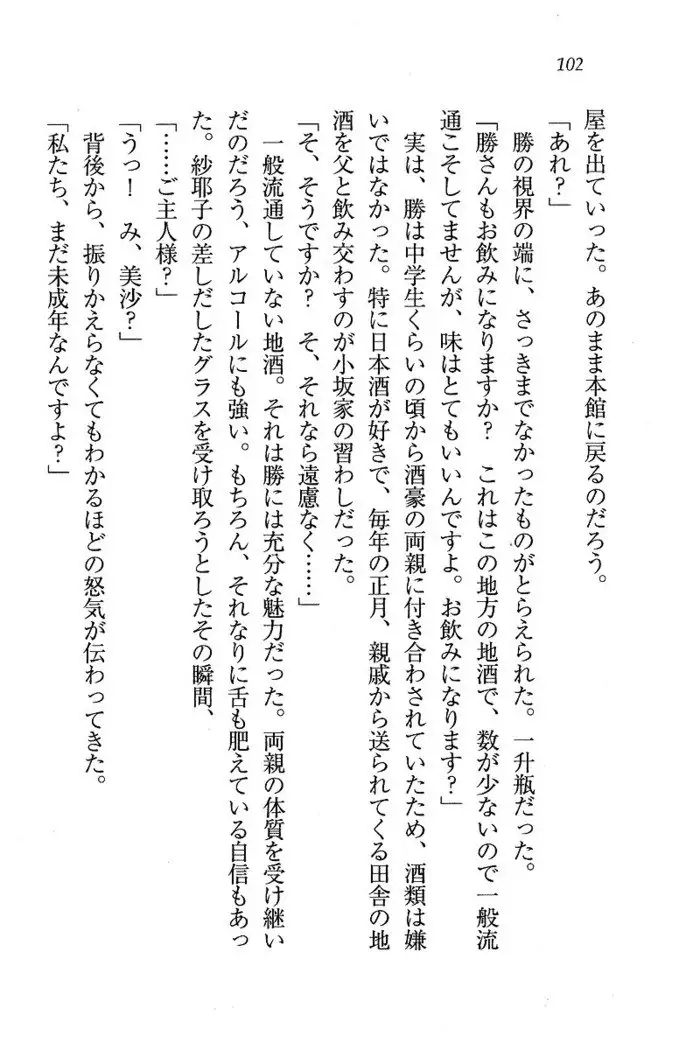 102
屋を出ていった。あのまま本館に戻るのだろう。
「あれ？」
勝の視界の端に、さっきまでなかったものがとらえられた。一升瓶だった。
「勝さんもお飲みになりますか？　これはこの地方の地酒で、数が少ないので一般流
通こそしてませんが、味はとてもいいんですよ。お飲みになります？」
実は、勝は中学生くらいの頃から酒豪の両親に付き合わされていたため、酒類は嫌
いではなかった。特に日本酒が好きで、毎年の正月、親戚から送られてくる田舎の地
酒を父と飲み交わすのが小坂家の習わしだった。
「そ、そうですか？　そ、それなら遠慮なく……」
一般流通していない地酒。それは勝には充分な魅力だった。両親の体質を受け継い
だのだろう、アルコールにも強い。もちろん、それなりに舌も肥えている自信もあっ
た。紗耶子の差しだしたグラスを受け取ろうとしたその瞬間、
「……ご主人様？」
「うっ！　み、美沙？」
背後から、振りかえらなくてもわかるほどの怒気が伝わってきた。
「私たち、まだ未成年なんですよ？」